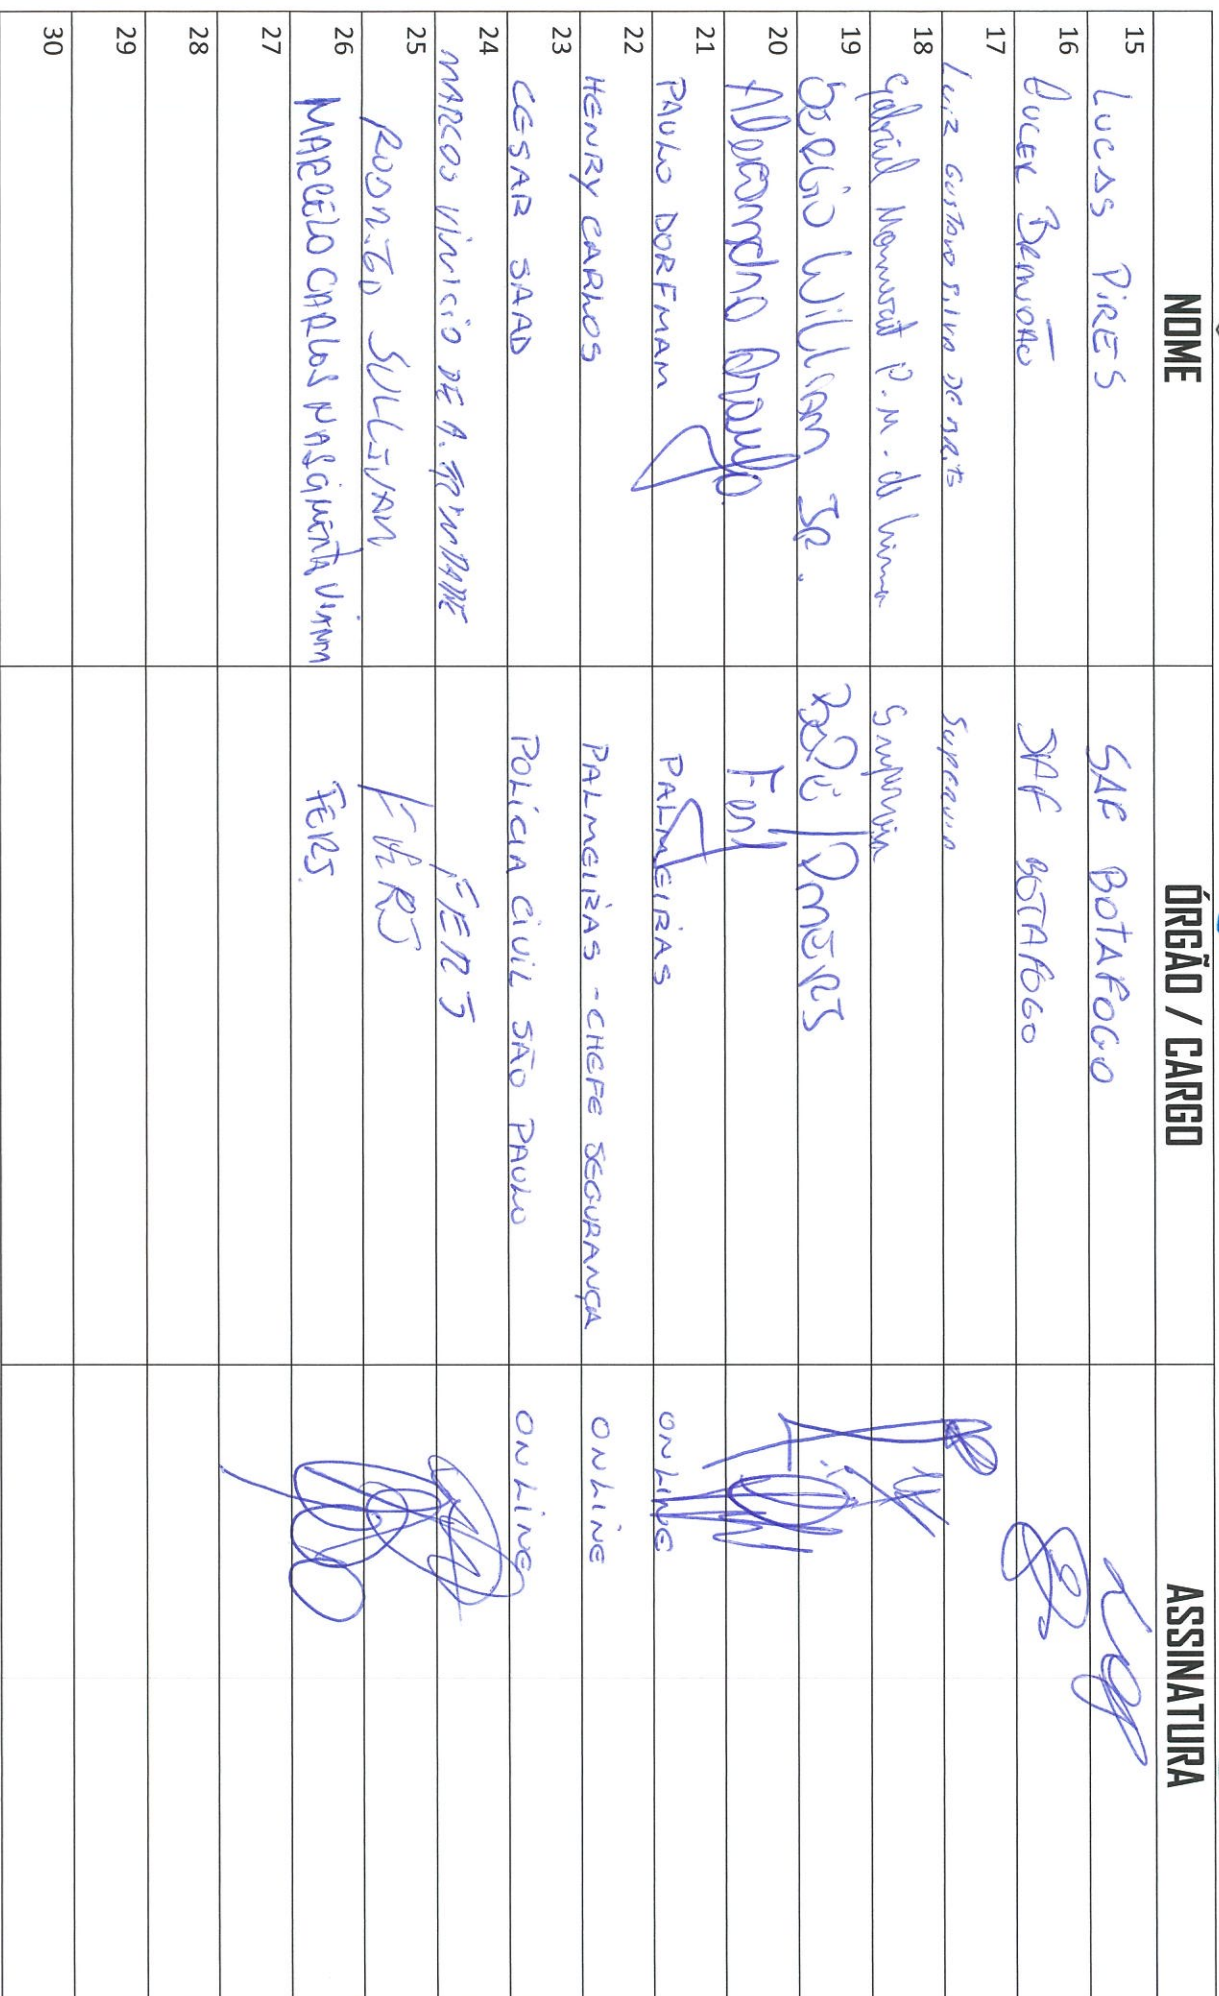 NOME ÓRGÃO / CARGO ASSINATURA
15 LUCAS PIRES SAF BOTAFOGO
16 BRANDÃO SAF BOTAFOGO
17 LUIZ GUSTAVO SILVA DE SUPERVIA
18 Gabriel P. M. de Supervia
19 SERGIO WILLIAM JR. BEPE / PMERJ
20 Alexandre Araujo Ferj
21 PAULO DORFMAM PALMEIRAS ONLINE
22 HENRY CARLOS PALMEIRAS - CHEFE SEGURANÇA ONLINE
23 CESAR SAAD POLÍCIA CIVIL SÃO PAULO ONLINE
24 MARCOS VINICIO DE A. TRINDADE FERJ
25 RODRIGO SULLIVAN FERJ
26 MARCELO CARLOS NASCIMENTO VIANNA FERJ.
27
28
29
30